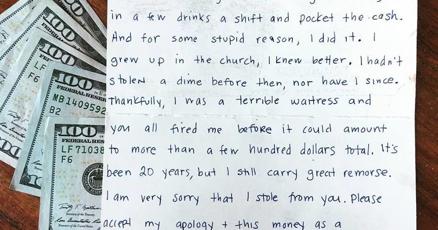 in a few drinks a shift and pocket the cash.
And for some stupid reason, I did it. I
grew up in the church, I knew better. I hadn't
stolen a dime before then, nor have I since.
Thankfully, I was a terrible waitress and
you all fired me before it could amount
to more than a few hundred dollars total. It's
been 20 years, but I still carry great remorse.
I am very sorry that I stole from you. Please
accept my apology + this money as a
100
100
LF
F6
MB1409592
B2
100
FEDERAL RESER
LF71038
F6